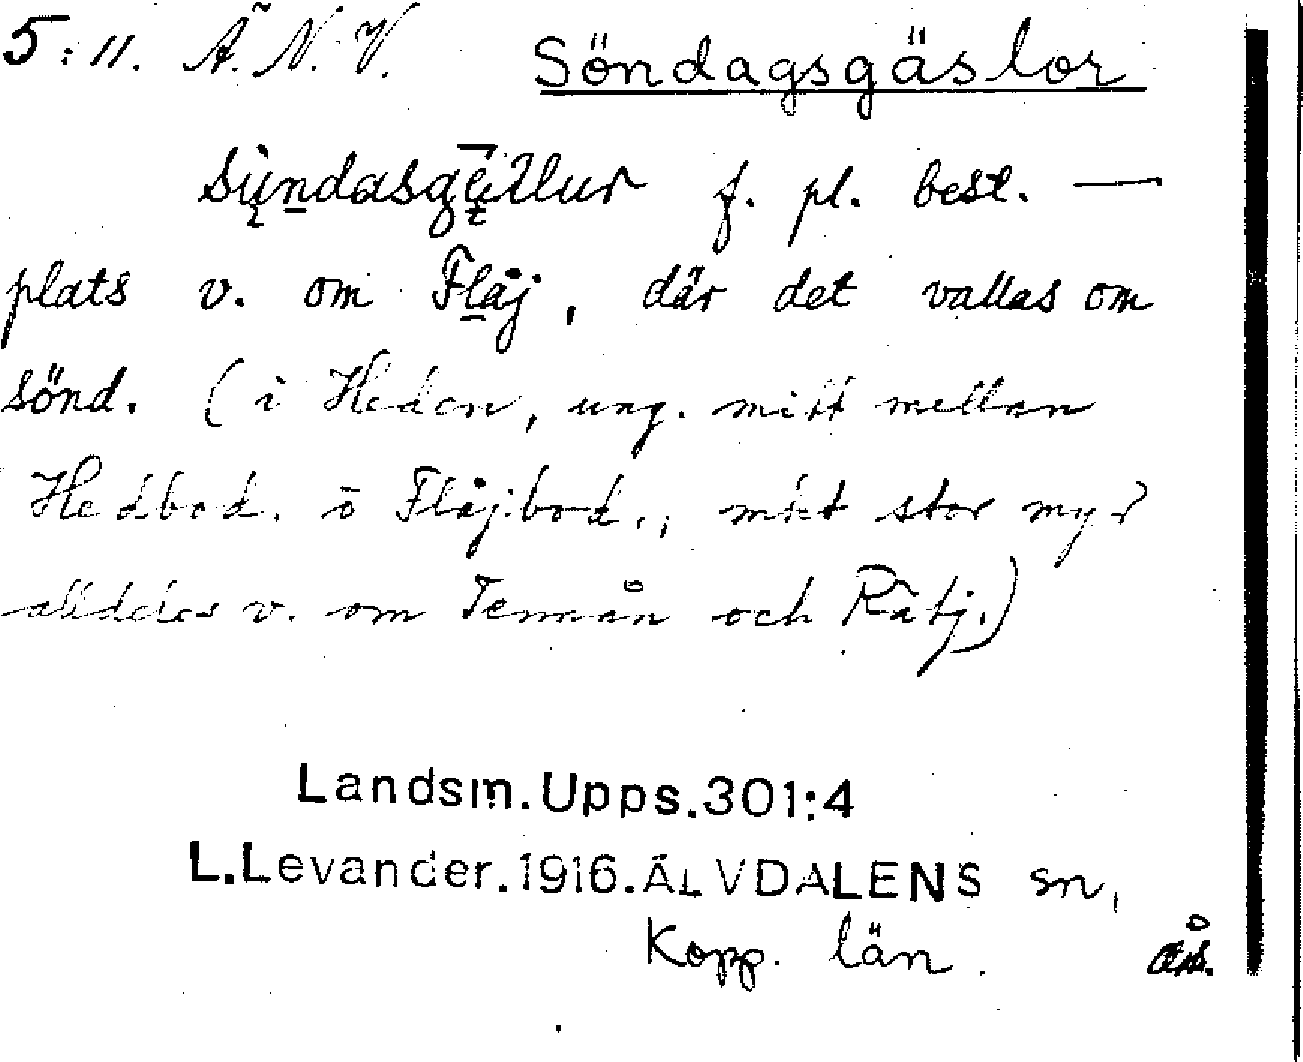 5:11. Ä. N. V. Söndagsgäslor
sųndasgę̄llur f. pl. best. —
plats v. om Flåj, där det vallas om
sönd. (i Heden, ung. mitt mellan
Hedbod. ö Flåjbod., mkt stor myr
alldeles v. om Temnån och Råtj.)
Landsm. Upps. 301:4
L. Levander. 1916. ÄLVDALENS sn,
Kopp. län.